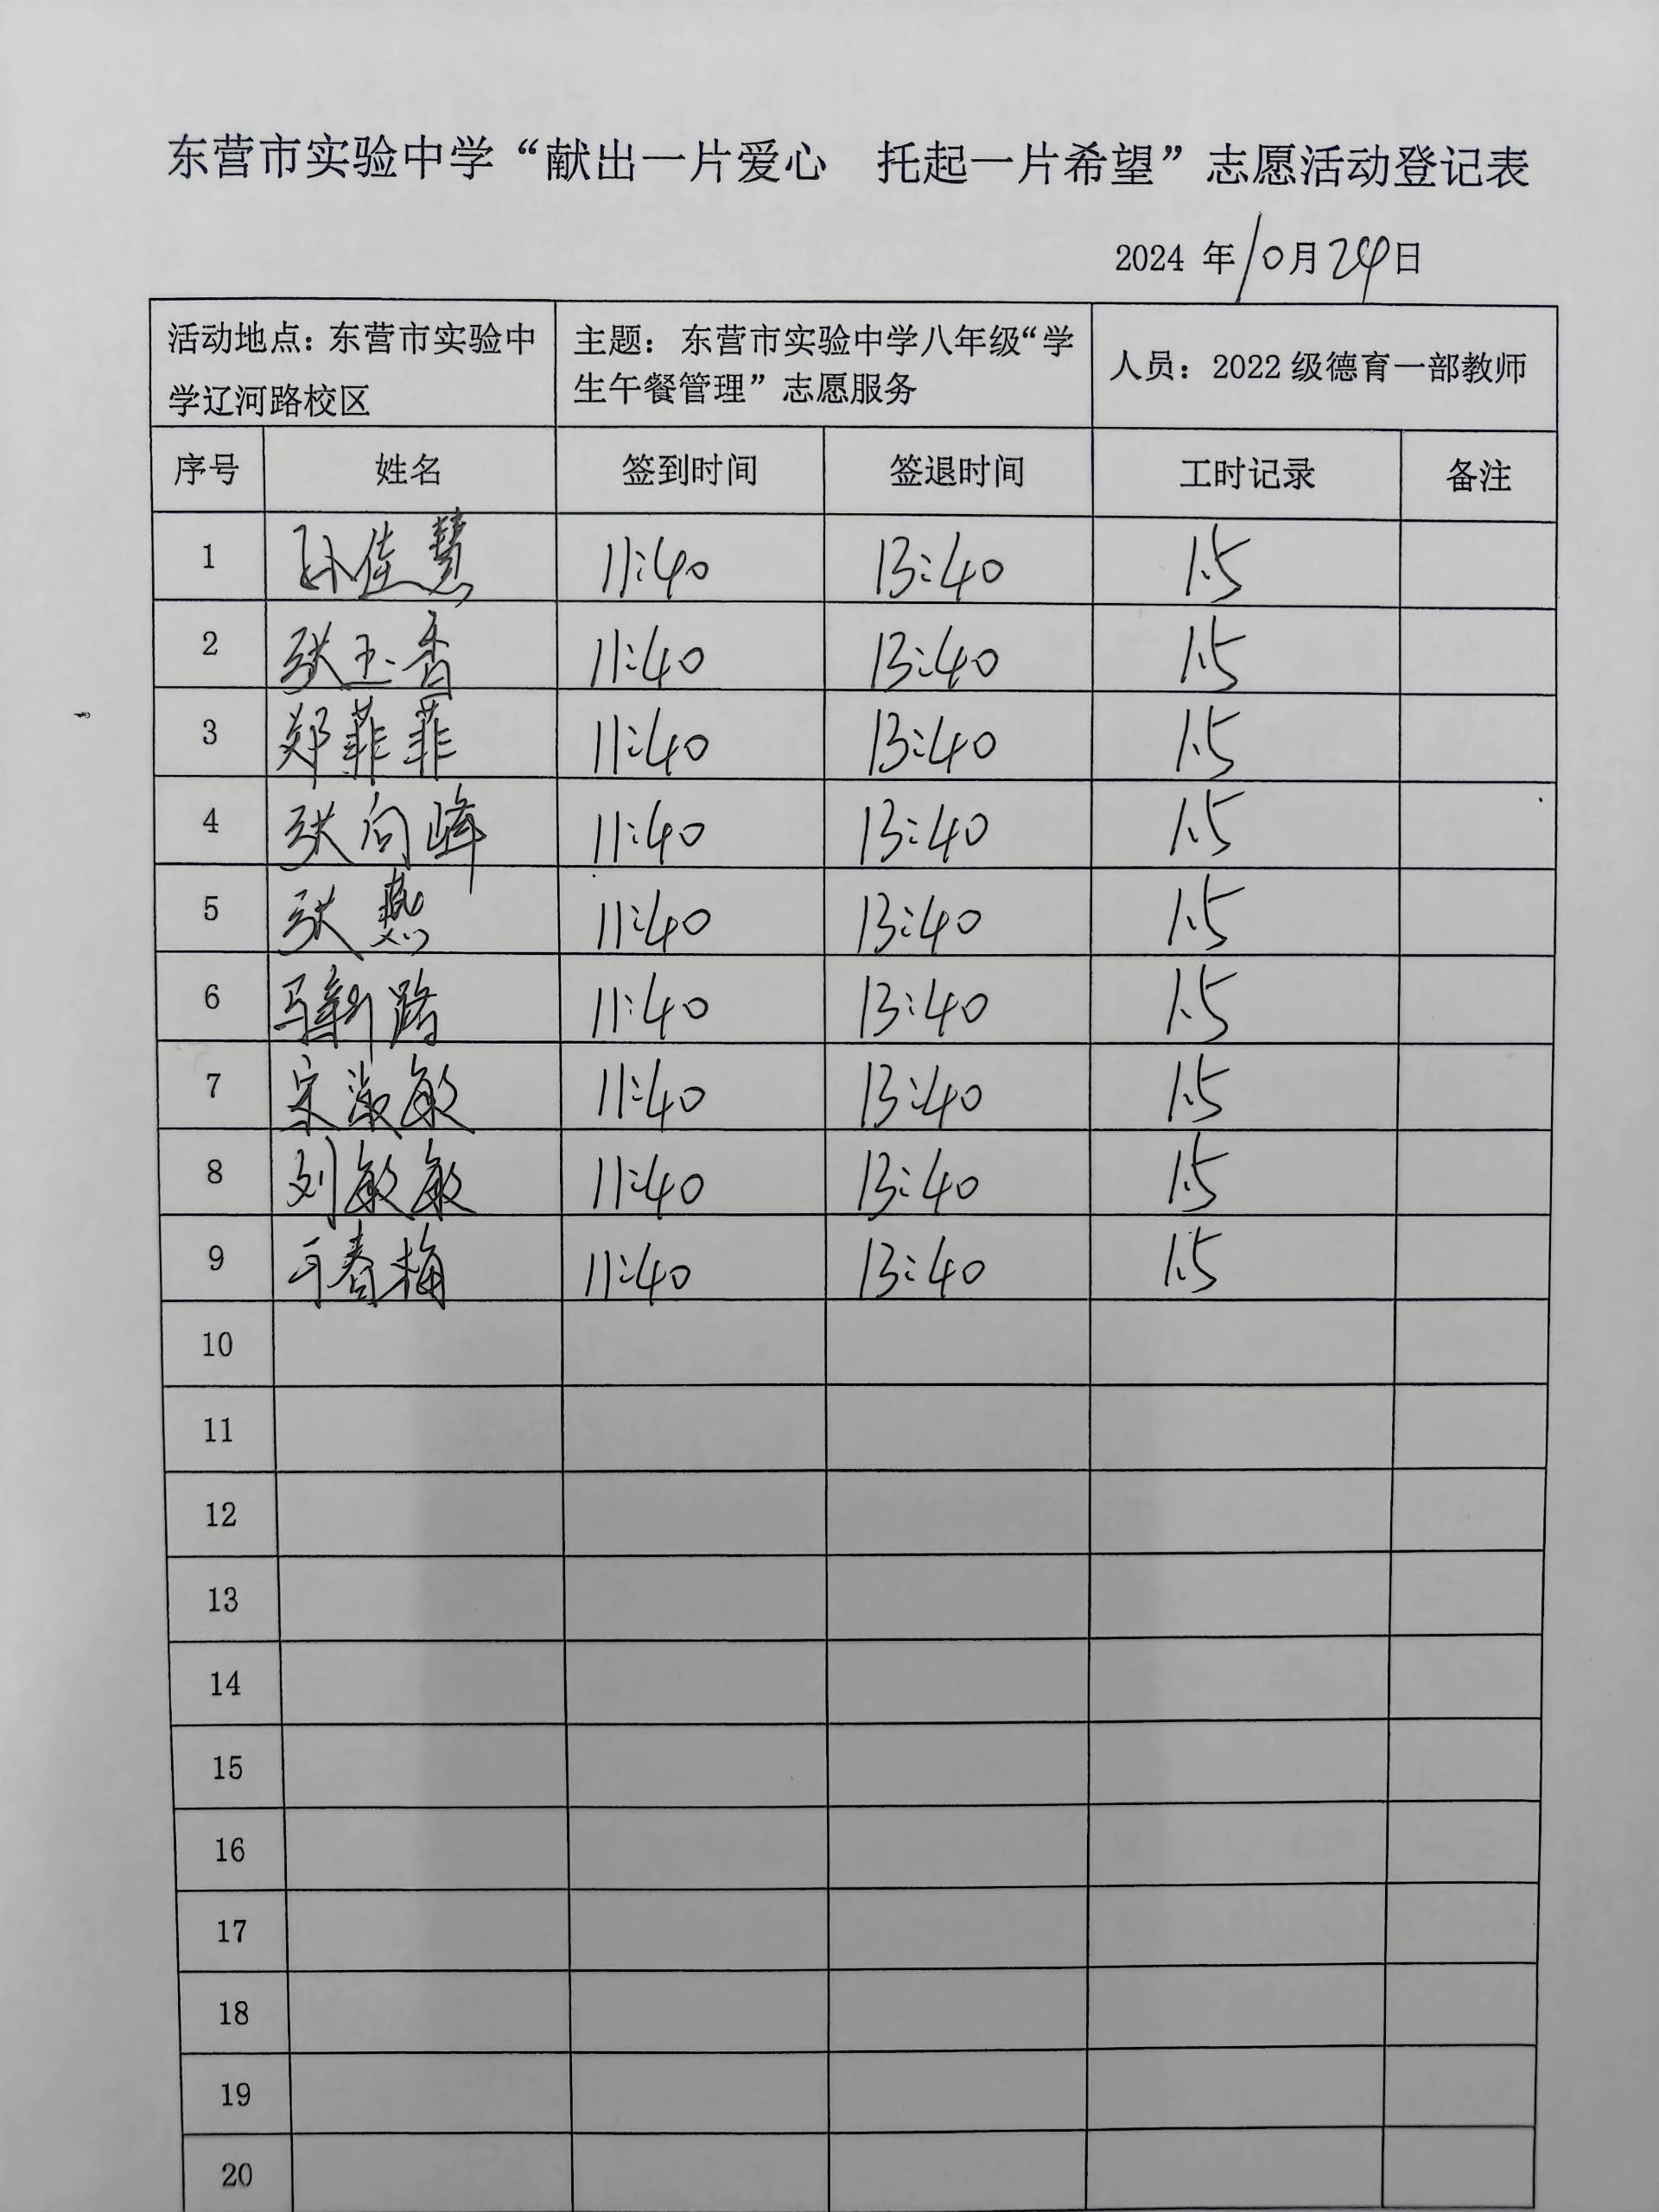 东营市实验中学“献出一片爱心 托起一片希望”志愿活动登记表
2024 年10月24日
活动地点：东营市实验中学辽河路校区 主题：东营市实验中学八年级“学生午餐管理”志愿服务 人员：2022 级德育一部教师
序号 姓名 签到时间 签退时间 工时记录 备注
1 孙佳慧 11:40 13:40 1.5
2 张玉香 11:40 13:40 1.5
3 郑菲菲 11:40 13:40 1.5
4 张向峰 11:40 13:40 1.5
5 张燕 11:40 13:40 1.5
6 马新路 11:40 13:40 1.5
7 宋淑敏 11:40 13:40 1.5
8 刘敏敏 11:40 13:40 1.5
9 春梅 11:40 13:40 1.5
10
11
12
13
14
15
16
17
18
19
20